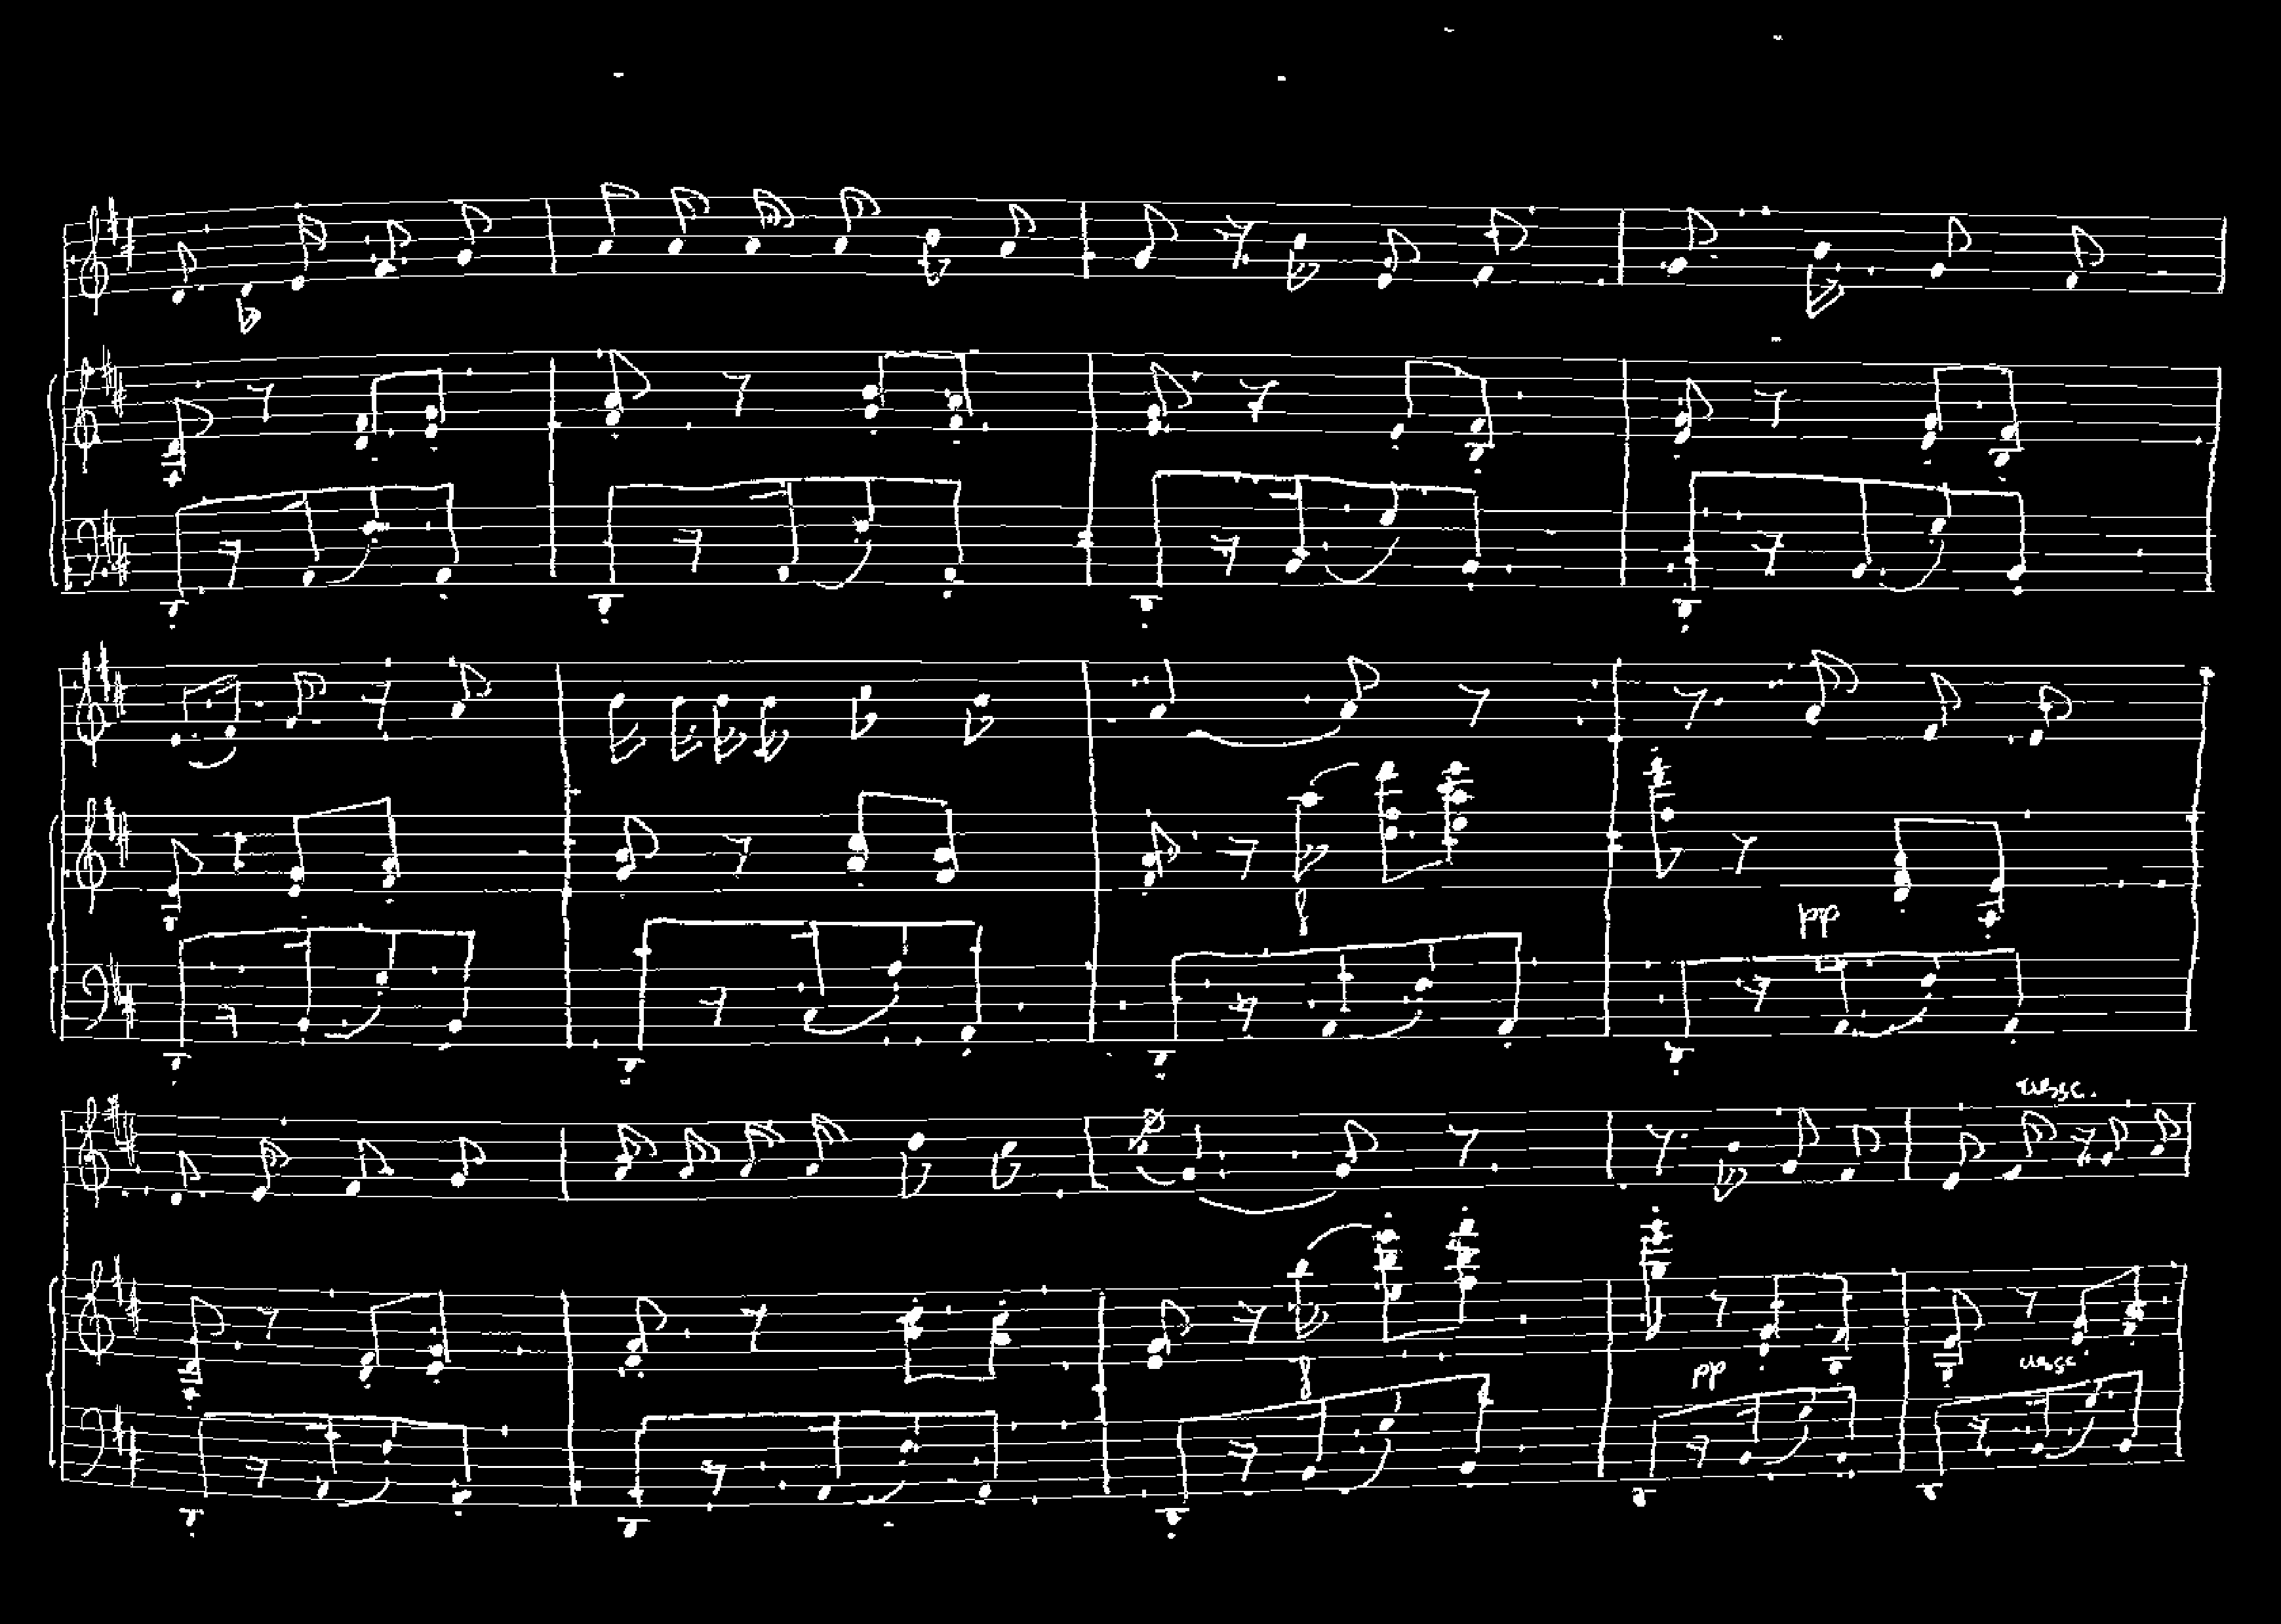 f pp
cresc.
f pp cresc